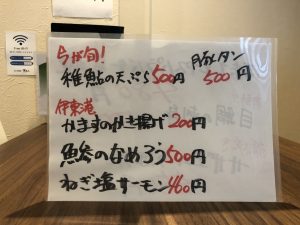 Free Wi-Fi
今が旬!
稚鮎の天ぷら500円
豚タン
500円
伊東港
かますのかき揚げ200円
魚参のなめろう500円
ねぎ塩サーモン460円